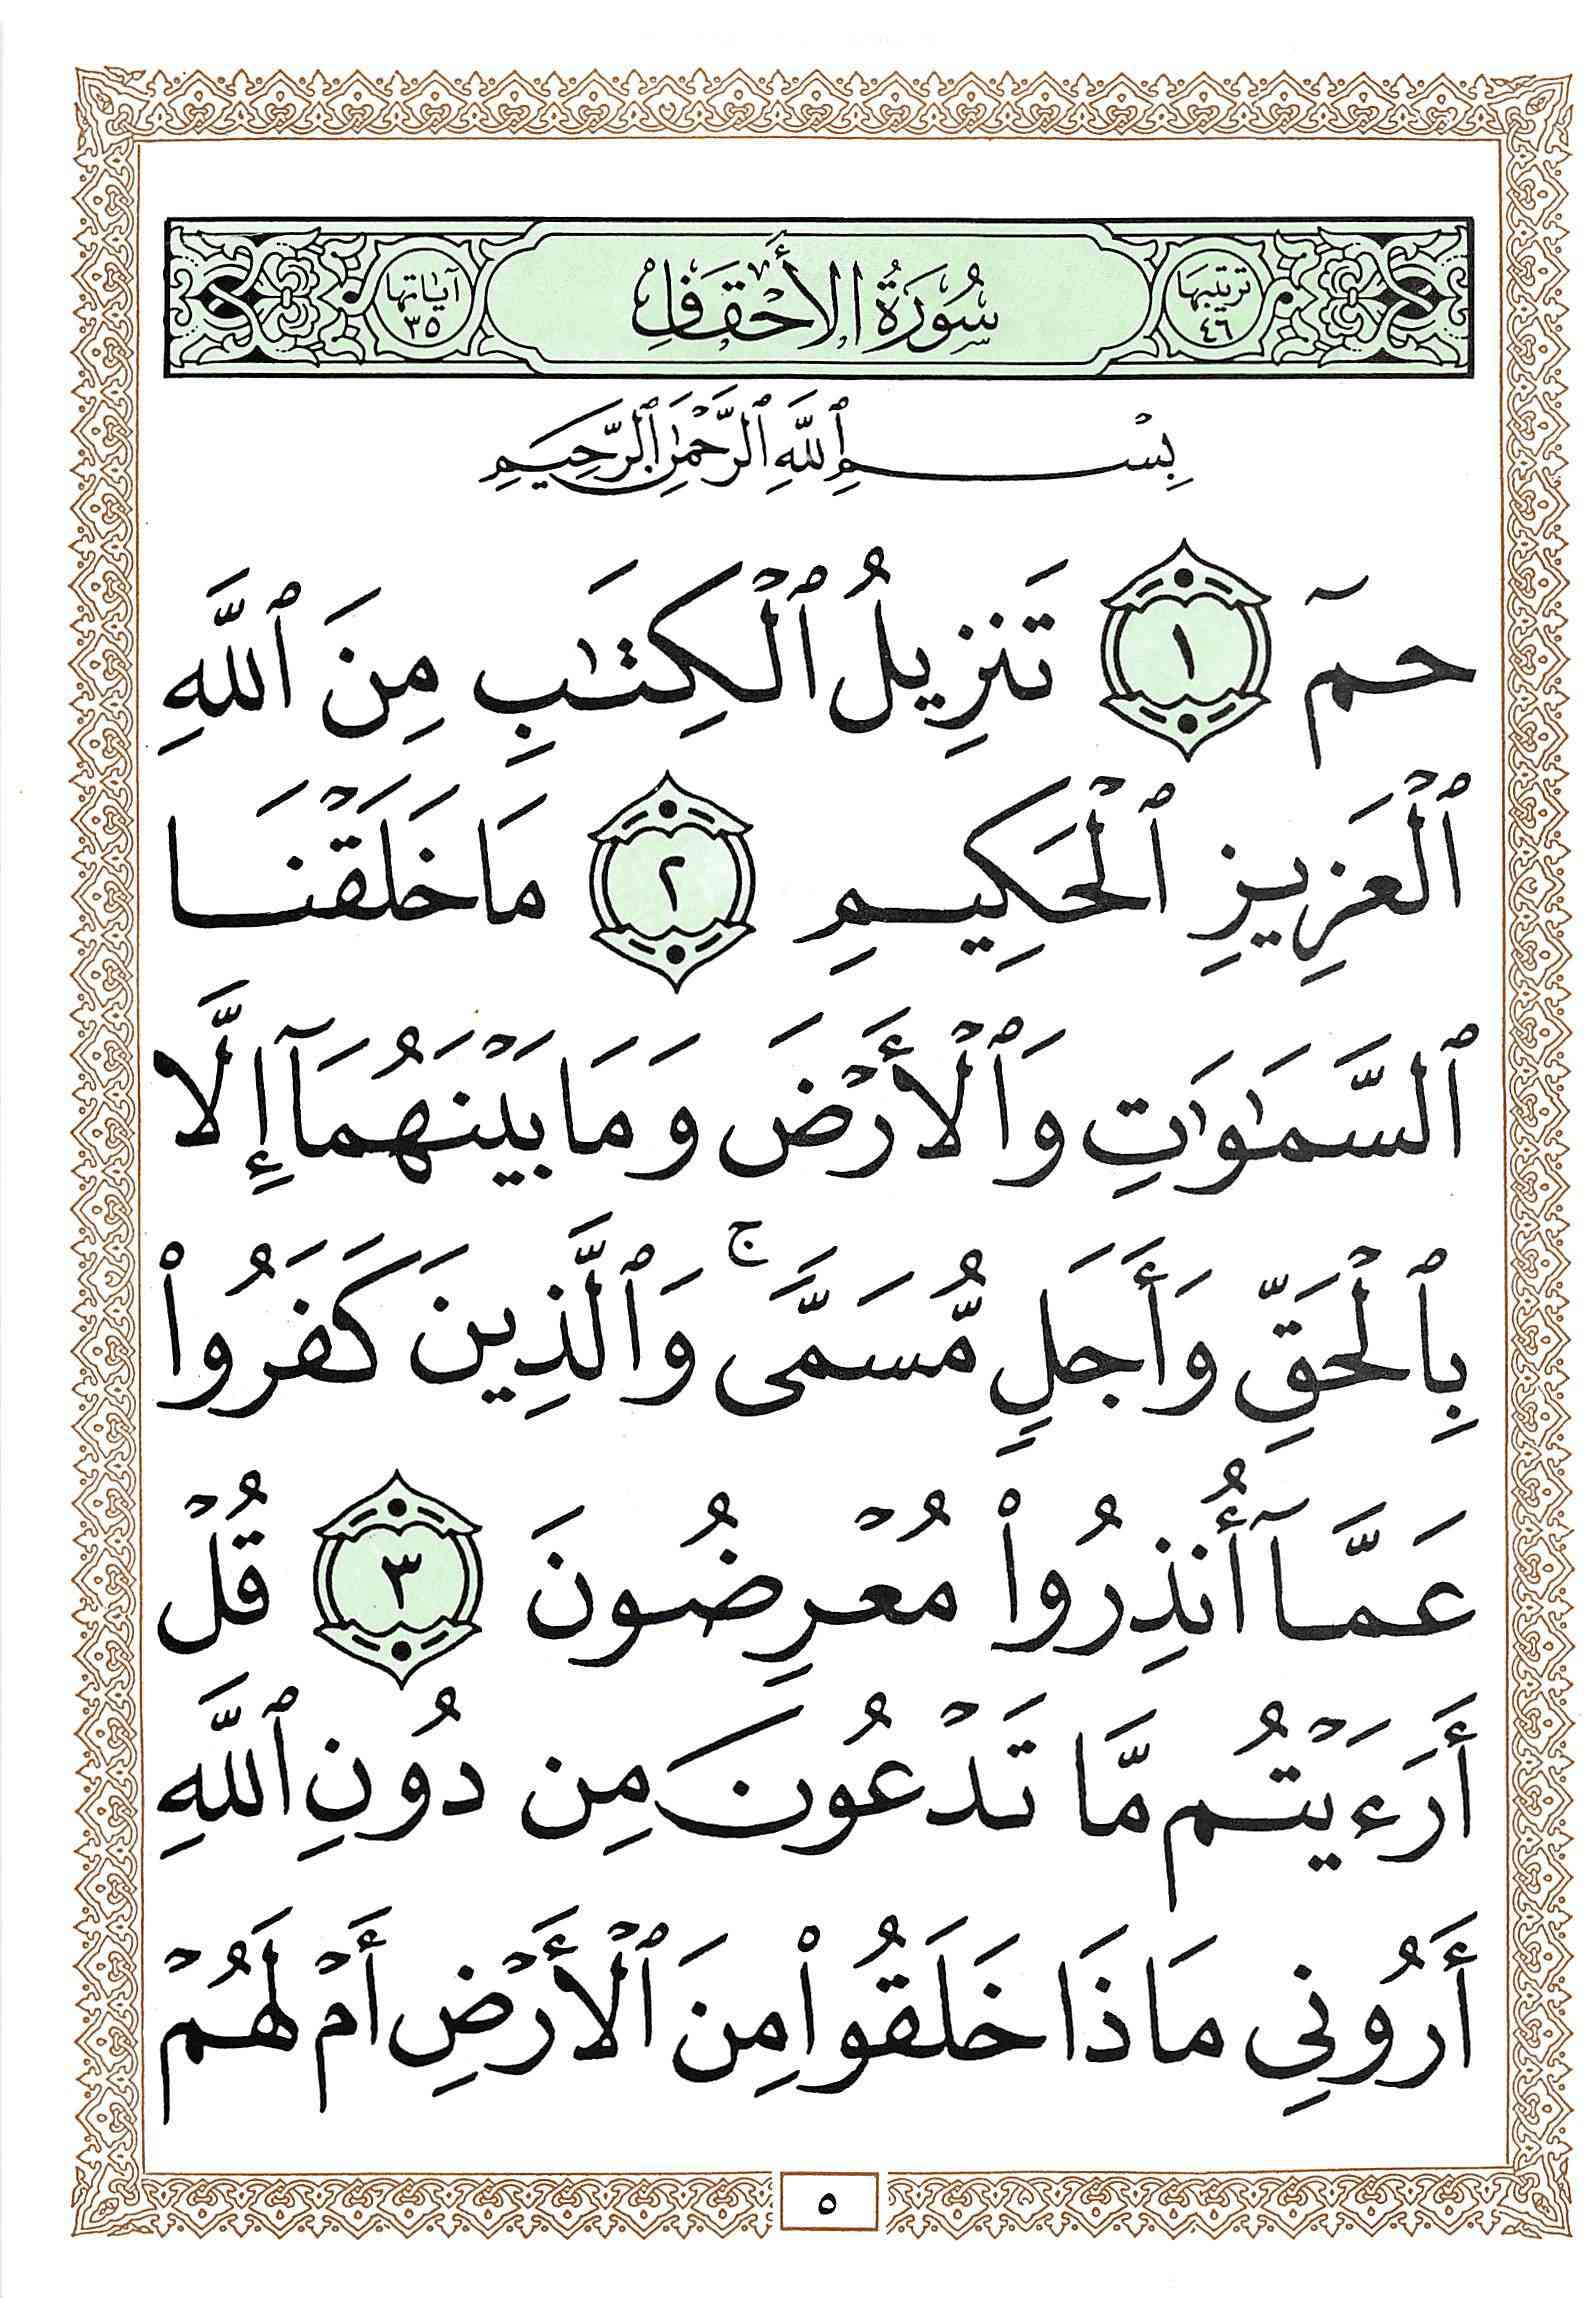 ترتيبها ٤٦ سُورَةُ الأَحْقَافِ آياتها ٣٥
بِسْمِ ٱللَّهِ ٱلرَّحْمَٰنِ ٱلرَّحِيمِ
حمٓ ١ تَنزِيلُ ٱلْكِتَٰبِ مِنَ ٱللَّهِ
ٱلْعَزِيزِ ٱلْحَكِيمِ ٢ مَا خَلَقْنَا
ٱلسَّمَٰوَٰتِ وَٱلْأَرْضَ وَمَا بَيْنَهُمَآ إِلَّا
بِٱلْحَقِّ وَأَجَلٍ مُّسَمًّى ۚ وَٱلَّذِينَ كَفَرُوا۟
عَمَّآ أُنذِرُوا۟ مُعْرِضُونَ ٣ قُلْ
أَرَءَيْتُم مَّا تَدْعُونَ مِن دُونِ ٱللَّهِ
أَرُونِى مَاذَا خَلَقُوا۟ مِنَ ٱلْأَرْضِ أَمْ لَهُمْ
٥